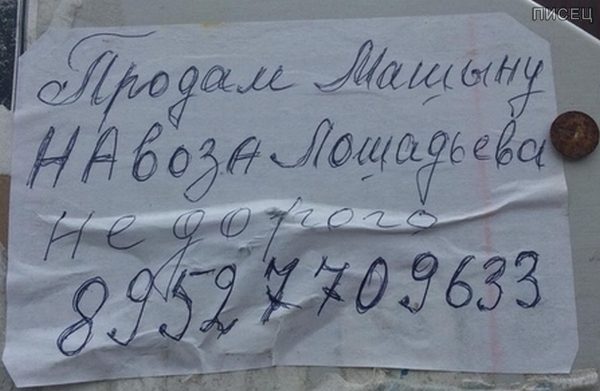 ПИСЕЦ
Продам Машыну
НАвоза Лошадьева
не дорого
89527709633